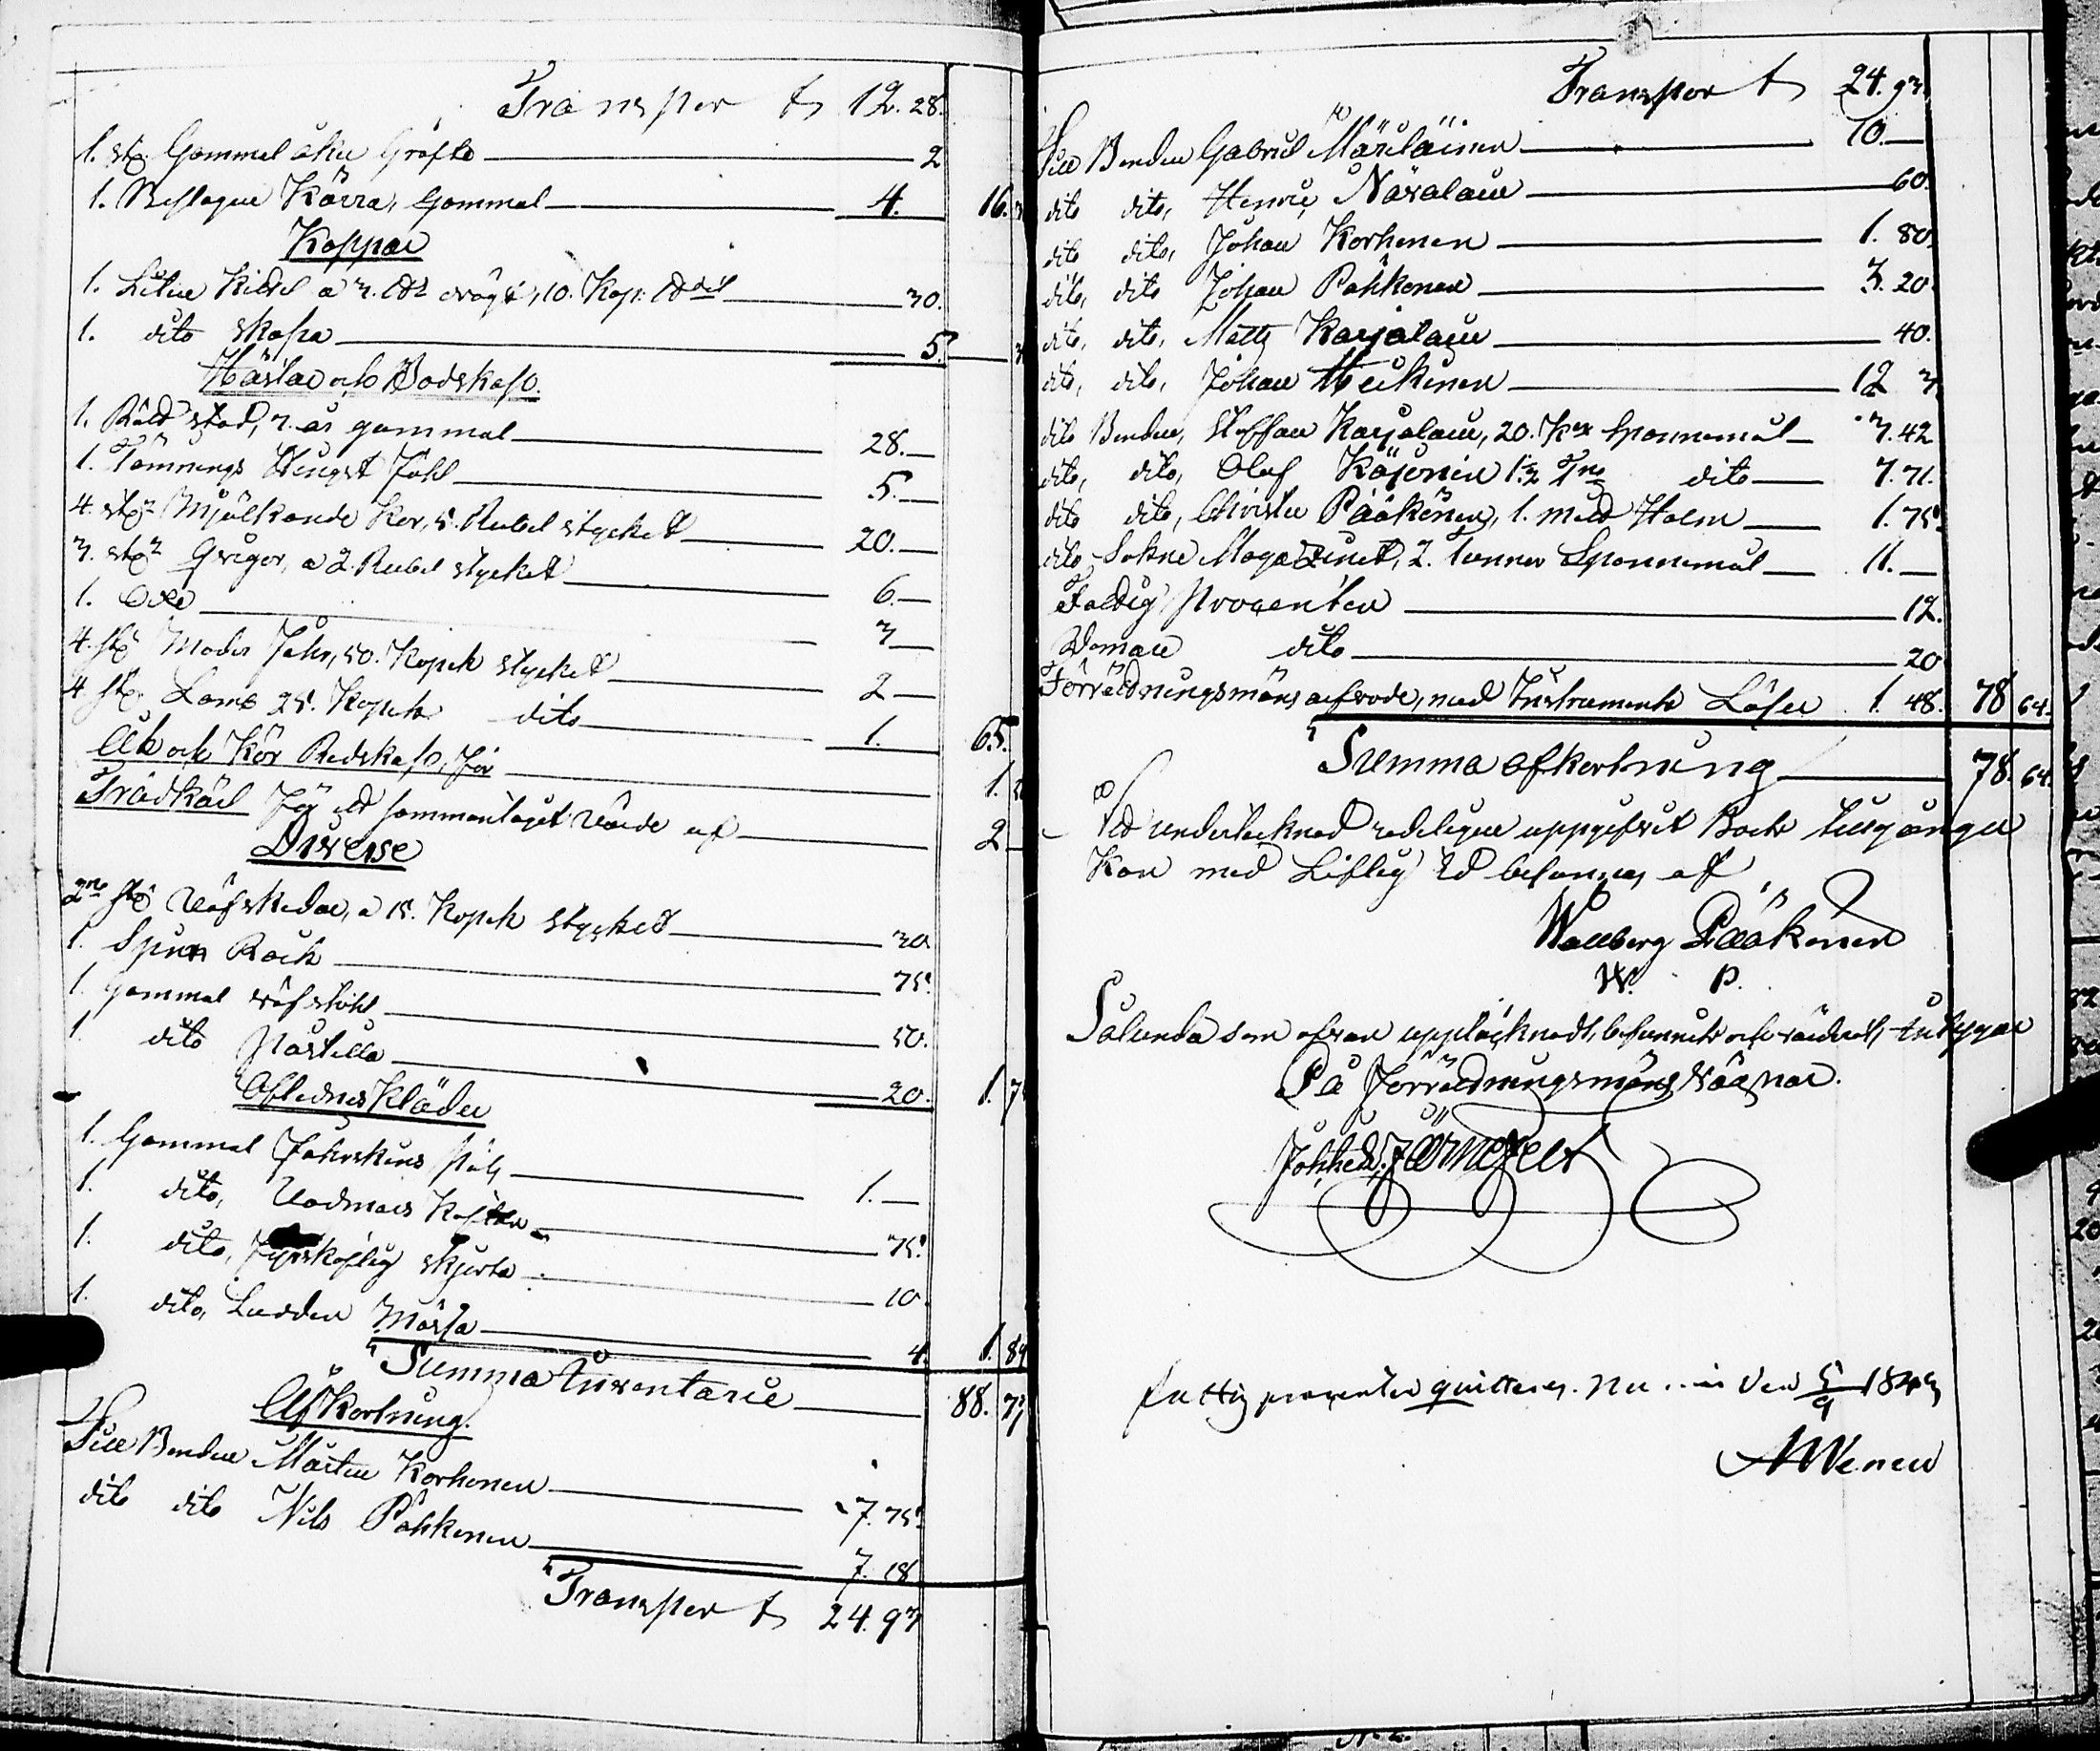 Transport 12. 28.
1. st. Gammal åker Gräfta 2
1. Beslagen Kärra, Gammal 4. 16.
Koppar
1. Liten Kittel a 3. vägt, 10. Kop. 30.
1. dito skopa 5.
Hästar och Bodskap
1. Röld stod, 7. år gammal 28.
1. Tämnings Hingst Fohl 5.
4. st. Mjölkande Kor, 5. Rubel stycket 20.
3. st. Qvigor, a 2. Rubel stycket 6.
1. Oxe 3
4. st. Moder Fåhr, 50. Kopek stycket 2
4. st. Lamb 25. Kopek dito 1. 65.
Åk och Kör Redskap, för 1.
Trädkäril för ett sammanlagt värde af 2
Diverse
2ne st. Väfskedar, a 15. Kopek stycket 30
1. Spinn Rock 75.
1. gammal väfstohl 50.
1. dito 20. 1.
Aflednes Kläder
1. Gammal Fahrskins päls 1.
1. dito, Vadmals 75.
1. dito, skjorta 10.
1. dito, Ludden Mössa 4. 1. 84
Summa Inventarie 88. 77
Afkortning.
Till Bonden Mårten Korhonen 7. 75.
dito dito Nils Pahkonen 7. 18
Transport 24. 93
Transport 24. 93
Till Bonden Gabriel Märiläinen 10.
dito dito, Henric Navalain 60.
dito dito, Johan Korhonen 1. 80.
dito, dito Johan Pahkonen 3. 20.
dito, dito, Matts Karjalain 40.
dito, dito, Johan Heikinen 12 3
dito Bonden, Staffan Karjalain, 20. Spannemål 3. 42
dito, dito, Olof 1½ dito 7. 71.
dito dito, Christer Pääkönen, 1. Halm 1. 75
dito Sokne Magazinet, 2. Tunnor Spannemål 11.
Fattig Procenten 12.
Domare dito 20
Förrättningsmäns arfvode, med Instruments Lösen 1. 48. 78 64.
Summa afkortning 78. 64.
Att undertecknad redeligen uppgifvit Boets tillgångar
Kan med Liflig Ed besannas af
Wallborg Pääkönen
W. P.
Sålunda som ofvan upptecknadt, befunnits och värderat, intygar
På Förrättningsmäns vägnar.
Joh. Fr. Järnefelt
fattig procenten quitteras. den 5/9 1849